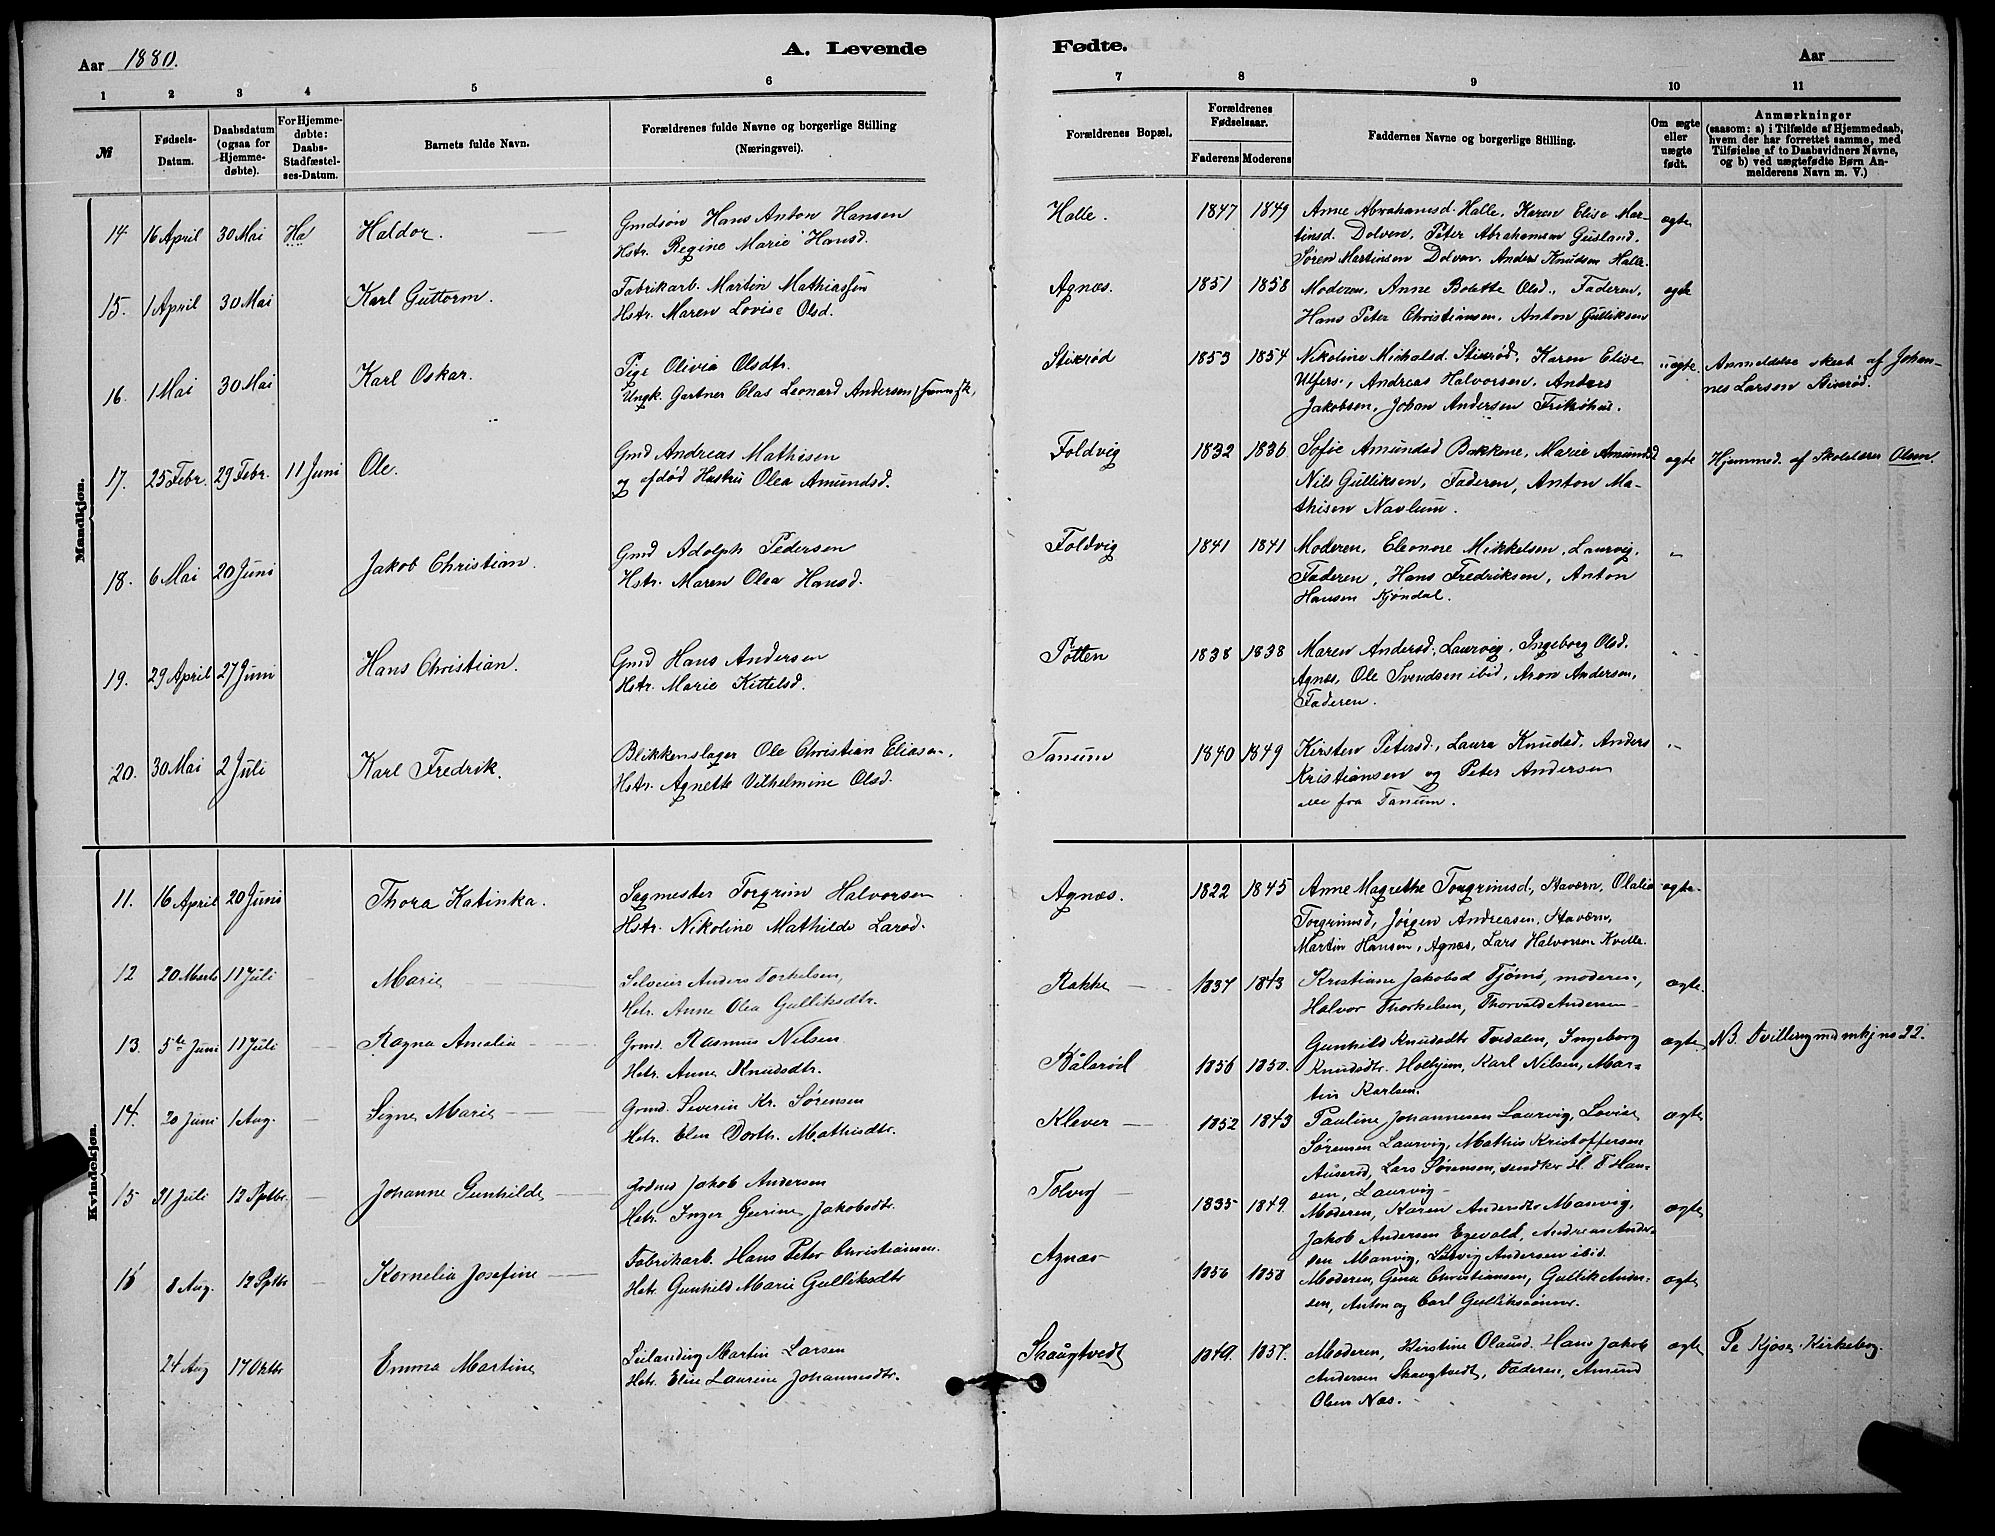 Aar 1880.
A. Levende
Fødte.
Aar
1 2 3 4 5 6 7 8 9 10 11
№
Fødsels-
Datum.
Daabsdatum
(ogsaa for
Hjemme-
døbte).
For Hjemme-
døbte:
Daabs-
Stadfæstel-
ses-Datum.
Barnets fulde Navn.
Forældrenes fulde Navne og borgerlige Stilling
(Næringsvei).
Forældrenes Bopæl.
Forældrenes
Fødselsaar.
Faderens Moderens
Faddernes Navne og borgerlige Stilling.
Om ægte
eller
uægte
født.
Anmærkninger
(saasom: a) i Tilfælde af Hjemmedaab,
hvem der har forrettet samme, med
Tilføielse af to Daabsvidners Navne,
og b) ved uægtefødte Børn An-
melderens Navn m. V.)
Mandkjøn.
14 16 April 30 Mai Haldor.
Gmdsøn Hans Anton Hansen
Hstr. Regine Marie Hansd.
Halle. 1847 1849
Anne Abrahamsd. Halle, Karen Elise Mar-
tinsd. Dolven, Peter Abrahamsen Gusland,
Søren Martinsen Dolven. Anders Knudsen Halle.
ægte
15. 1 April 30 Mai Karl Guttorm.
Fabrikarb. Martin Mathiassen
Hstr. Maren Lovise Olsd.
Agnæs. 1851 1858
Moderen, Anne Bolette Olsd., Faderen,
Hans Peter Christiansen, Anton Gulliksen
ægte
16. 1 Mai 30 Mai Karl Oskar.
Pige Olivia Olsdtr.
Ungk. Gartner Olas Leonard Andersen
Stixrød 1853 1854
Nikoline Michalsd. Stixrød, Karen Elise
Ulfers., Andreas Halvorsen, Anders
Jakobsen, Johan Andersen
uægte.
Anmeldelse skeet af Johan-
nes Larsen Stixrød.
17. 25 Febr. 29 Febr. 11 Juni Ole.
Gmd Andreas Mathisen
og afdød Hustru Olea Amundsd.
Foldvig 1832 1836
Sofie Amundsd Bakkene, Marie Amundsd
Nils Gulliksen, Faderen, Anton Ma-
thisen Navlum.
ægte
Hjemmed. af Skolelærer Olsen.
18. 6 Mai 20 Juni Jakob Christian.
Gmd Adolph Pedersen
Hstr. Maren Olea Hansd.
Foldvig 1841 1841
Moderen, Eleonore Mikkelsen, Laurvig,
Faderen, Hans Fredriksen, Anton
Hansen Kjøndal.
"
19. 29 April 27 Juni Hans Christian.
Gmd Hans Andersen
Hstr. Marie Kittelsd.
Pøtten 1838 1838
Maren Andersd., Laurvig, Ingeborg Olsd.
Agnæs, Ole Svendsen ibid, Aron Andersen,
Faderen.
"
20. 30 Mai 2 Juli Karl Fredrik.
Blikkenslager Ole Christian Eliasen.
Hstr. Agnette Vilhelmine Olsd.
Tanum 1840 1849
Kirsten Petersd., Laura Knudsd, Anders
Kristiansen og Peter Andersen
alle fra Tanum.
"
Kvindekjøn.
11. 16 April 20 Juni Thora Katinka.
Sagmester Torgrim Halvorsen
Hstr. Nikoline Mathilde Larsd.
Agnæs. 1822 1845
Anne Magrethe Torgrimsd., Stavern, Olalia
Torgrimsd, Jørgen Andreasen, Stavern,
Martin Hansen, Agnæs, Lars Halvorsen Kvelle.
ægte
12 20 Marts 11 Juli Marie
Selveier Anders Torkelsen,
Hstr. Anne Olea Gulliksdtr.
Rakke 1837 1843
Kristiane Jakobsd Tjømø, moderen,
Halvor Thorkelsen, Thorvald Andersen
ægte.
13. 5te Juni 11 Juli Ragna Amalia
Grmd. Rasmus Nilsen
Hstr. Anne Knudsdtr.
Bålsrød 1856 1850.
Gunhild Knudsdtr Tvedalen, Ingeborg
Knudsdtr. Holhjem, Karl Nilsen, Mar-
tin Karlsen.
ægte.
NB. Tvilling med mkj no 22.
14. 20 Juni 1 Aug. Signe Marie
Grmd. Severin Kr. Sørensen
Hstr. Elen Dorth. Mathisdtr.
Klever 1852 1843
Pauline Johannesen Laurvig, Lovise
Sørensen Laurvig, Mathis Kristoffersen
Auserød, Lars Sørensen, sendker H. F. Han-
sen, Laurvig
ægte
15 31 Juli 12 Sptbr. Johanne Gunhilde
Grdmd Jakob Andersen
Hstr. Inger Gurine Jakobsdtr.
Tolvig 1835 1849.
Moderen, Karen Andersdtr Manvig,
Jakob Andersen Egevald, Andreas Ander-
sen Manvig, Ludvig Andersen ibid.
ægte
16 8 Aug. 12 Sptbr Kornelia Josefine
Fabrikarb. Hans Peter Christiansen.
Hstr. Gunhild Marie Gulliksdtr
Agnæs 1856 1858
Moderen, Gina Christiansen, Gullik Ander-
sen, Anton og Carl Gulliksønner.
ægte
24 Aug 17 Oktbr Emma Martine
Leilanding Martin Larsen
Hstr. Elise Laurine Johannesdtr.
Skaugtvedt 1849. 1857.
Moderen, Kirstine Olausd. Hans Jakob
Andersen Skaugtvedt, Faderen, Amund
Olsen Næs.
ægte
Te Kjose Kirkebog.